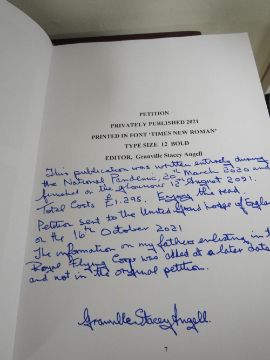 PETITION
PRIVATELY PUBLISHED 2021
PRINTED IN FONT 'TIMES NEW ROMAN'
TYPE SIZE 12 BOLD
EDITOR, Granville Stacey Angell
This publication was written entirely during
the National Pandemic, 20th March 2020 and
finished on the glamour 12th August 2021.
Total Costs £1.295. Enjoy the read.
Petition sent to the United Grand Lodge of England
on the 16th October 2021
The information on my fathers enlisting in the
Royal Flying Corps was added at a later date
and not in the original petition.
Granville Stacey Angell.
7